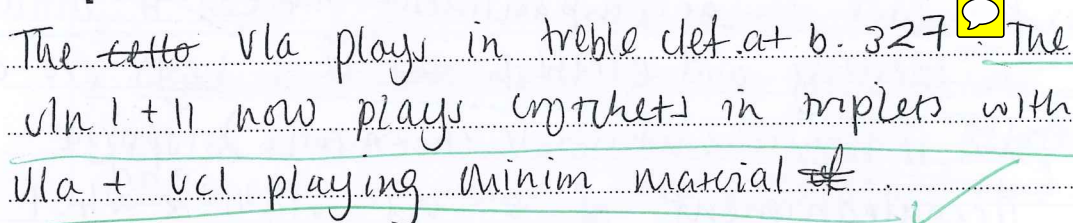 The cello vla plays in treble clef.at b. 327. The
vln I + II now plays crotchets in triplets with
vla + vcl playing minim material.